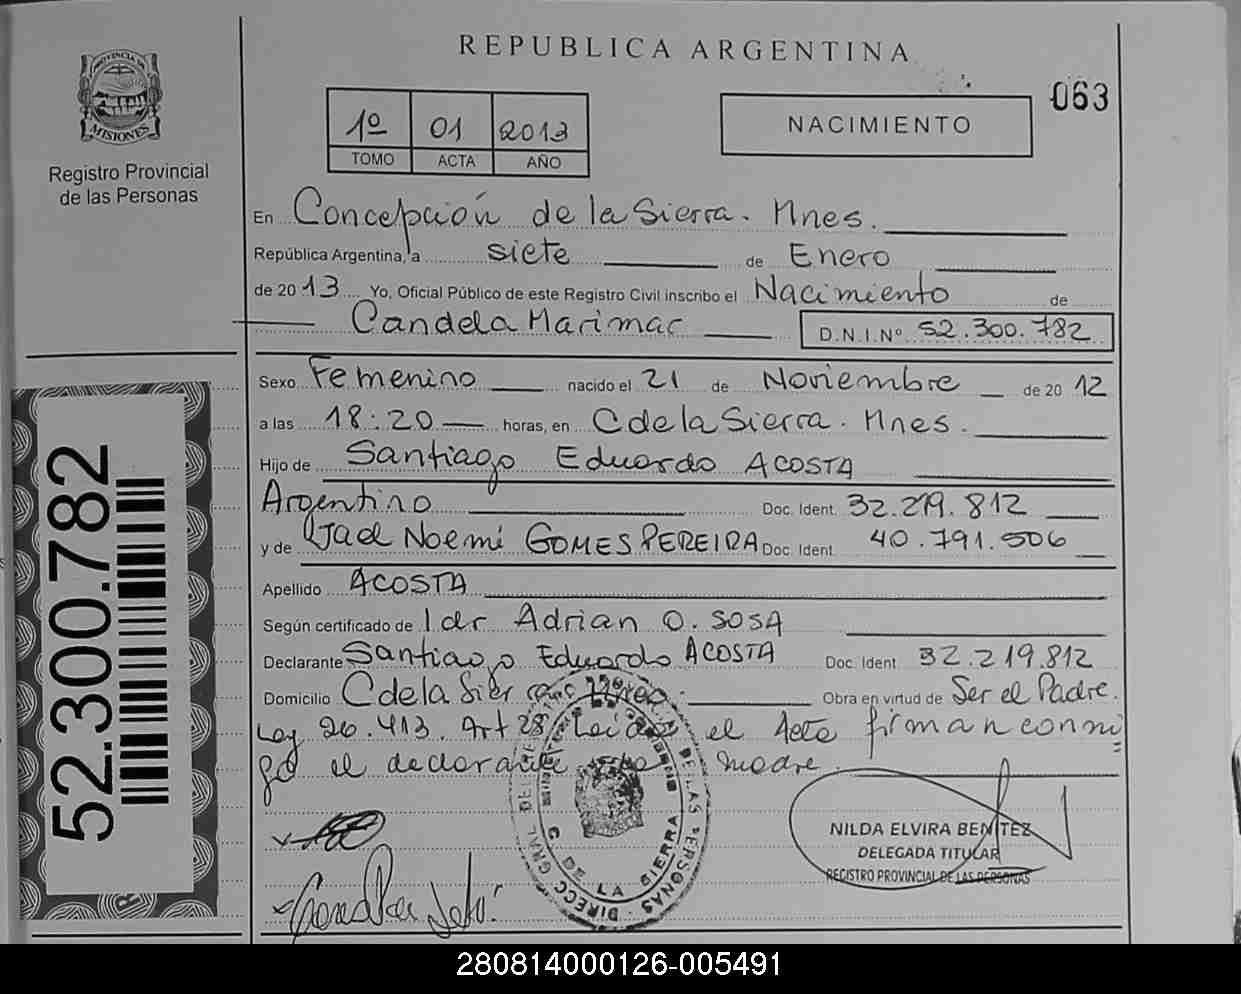 REPUBLICA ARGENTINA
063
PROVINCIA DE
MISIONES
Registro Provincial
de las Personas
1º 01 2013
TOMO ACTA AÑO
NACIMIENTO
En Concepción de la Sierra. Mnes.
República Argentina, a siete de Enero
de 2013 Yo, Oficial Público de este Registro Civil inscribo el Nacimiento de
Candela Marimar D.N.I.Nº 52.300.782
Sexo Femenino nacido el 21 de Noviembre de 2012
a las 18:20 horas, en C de la Sierra. Mnes.
Hijo de Santiago Eduardo ACOSTA
Argentino Doc. Ident. 32.219.812
y de Jael Noemi GOMES PEREIRA Doc. Ident. 40.791.506
Apellido ACOSTA
Según certificado de 1 dr Adrian O. SOSA
Declarante Santiago Eduardo ACOSTA Doc. Ident. 32.219.812
Domicilio C de la Sierra Mnes. Obra en virtud de Ser el Padre.
Ley 26.413. Art 28 Leida el Acta firman conmi
go el declarante madre.
52.300.782
C. DE LA SIERRA
DIRECC. GRAL. DE LAS PERSONAS
NILDA ELVIRA BENITEZ
DELEGADA TITULAR
REGISTRO PROVINCIAL DE LAS PERSONAS
280814000126-005491